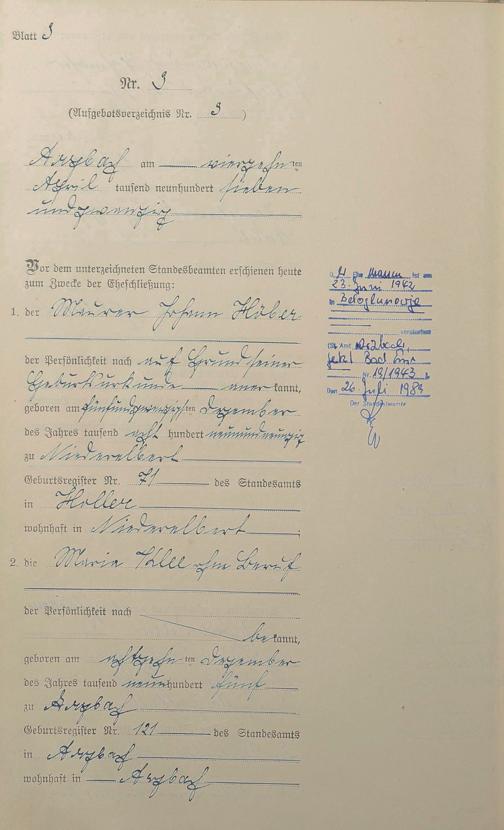 Blatt 9
Nr. 9
(Aufgebotsverzeichnis Nr. 9)
Arzbach am vierzehnten
April tausend neunhundert sieben
undzwanzig
Vor dem unterzeichneten Standesbeamten erschienen heute
zum Zwecke der Eheschließung:
1. der Maurer Johann Höber
der Persönlichkeit nach auf Grund seiner
Geburtsurkunde anerkannt,
geboren am fünfundzwanzigsten Dezember
des Jahres tausend acht hundert neunundneunzig
zu Niederelbert
Geburtsregister Nr. 71 des Standesamts
in Holler
wohnhaft in Niederelbert ;
2. die Maria Klee ohne Beruf
der Persönlichkeit nach
bekannt,
geboren am achtzehnten Dezember
des Jahres tausend neunhundert fünf
zu Arzbach
Geburtsregister Nr. 121 des Standesamts
in Arzbach
wohnhaft in Arzbach
Mann ist am
23. Juni 1942
in Beloglunovja
verstorben
(St. Amt Arzbach,
jetzt Bad Ems
Nr. 19/1943)
Den 26. Juli 1983
Der Standesbeamte